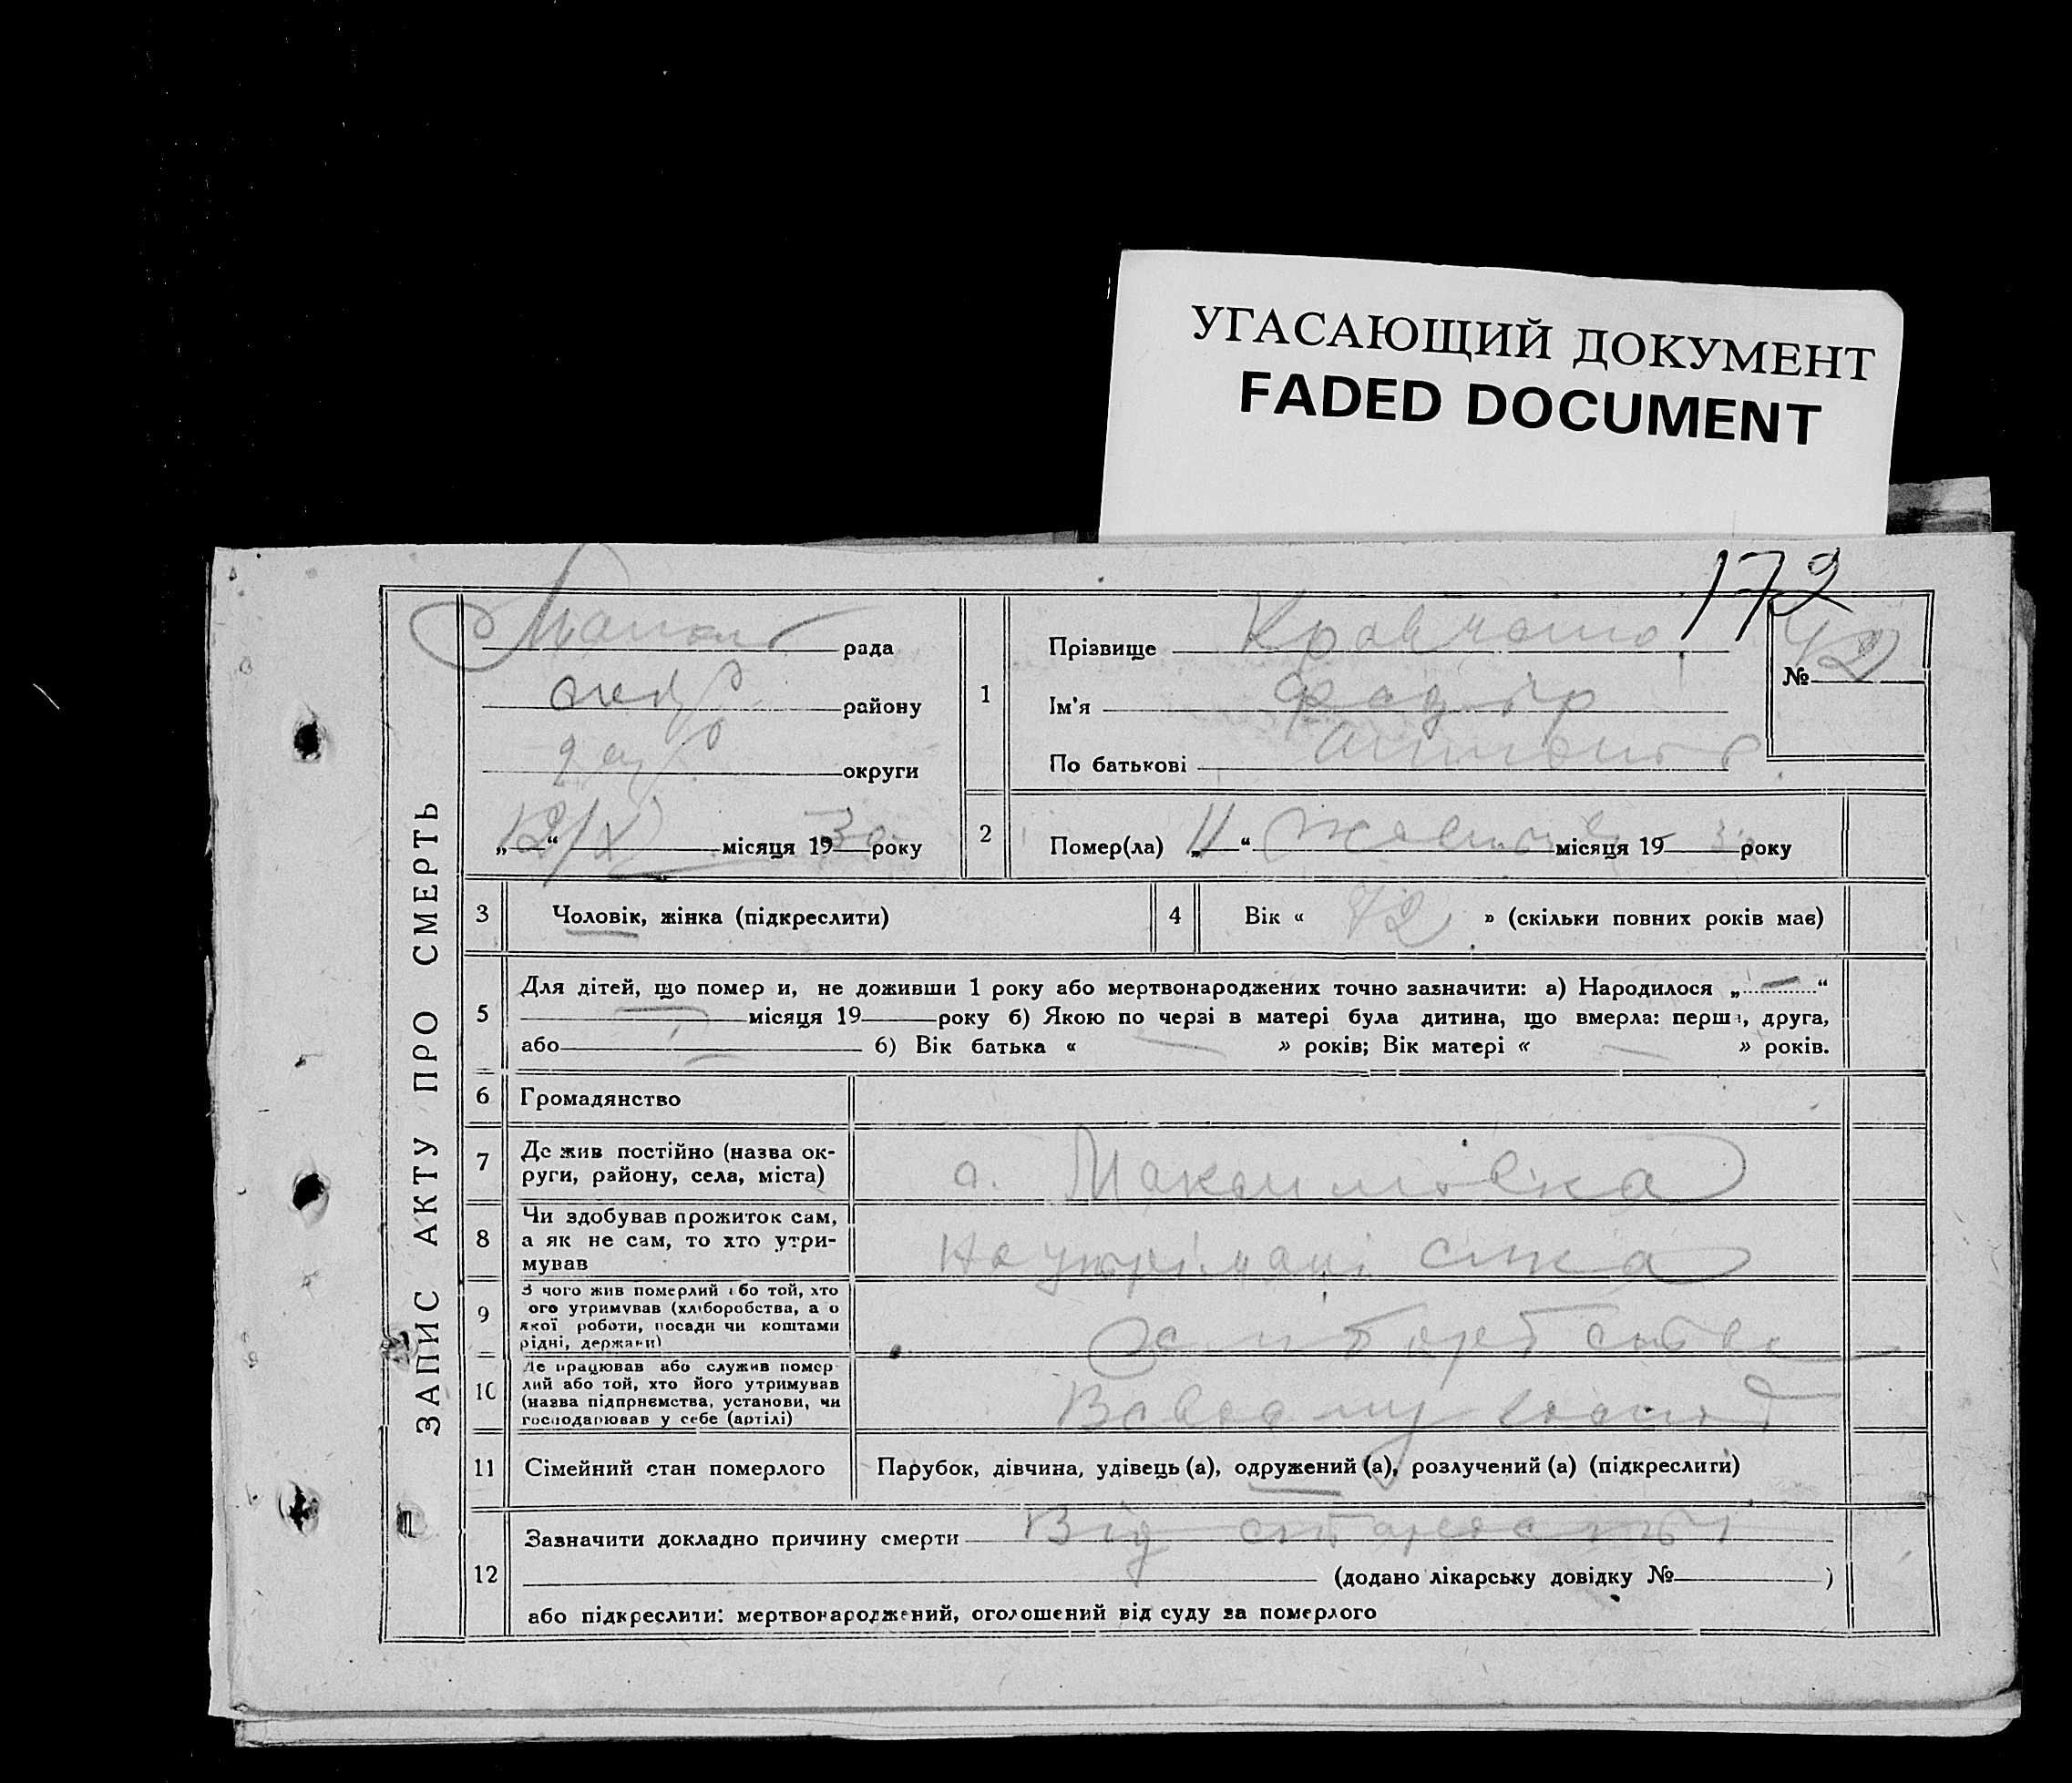 УГАСАЮЩИЙ ДОКУМЕНТ
FADED DOCUMENT
172
ЗАПИС АКТУ ПРО СМЕРТЬ
рада
району
округи
„12/X“ місяця 1930 року
1
Прізвище
Ім'я
По батькові
№ 42
2
Помер(ла) „11“ місяця 1930 року
3
Чоловік, жінка (підкреслити)
4
Вік « 72 » (скільки повних років має)
5
Для дітей, що помер и, не доживши 1 року або мертвонароджених точно зазначити: а) Народилося „—“
— місяця 19 року б) Якою по черзі в матері була дитина, що вмерла: перша, друга,
або — б) Вік батька « — » років; Вік матері « — » років.
6
Громадянство
7
Де жив постійно (назва ок-
руги, району, села, міста)
с. Максимовка
8
Чи здобував прожиток сам,
а як не сам, то хто утри-
мував
На утрімані сина
9
З чого жив померлий або той, хто
ого утримував (хліборобства, а о
якої роботи, посади чи коштами
рідні, держави)
10
Де працював або служив помер
лий або той, хто його утримував
(назва підприємства, установи, чи
господарював у себе (артілі)
11
Сімейний стан померлого
Парубок, дівчина, удівець (а), одружений (а), розлучений (а) (підкреслити)
12
Зазначити докладно причину смерти Від старости
(додано лікарську довідку № )
або підкреслити: мертвонароджений, оголошений від суду за померлого